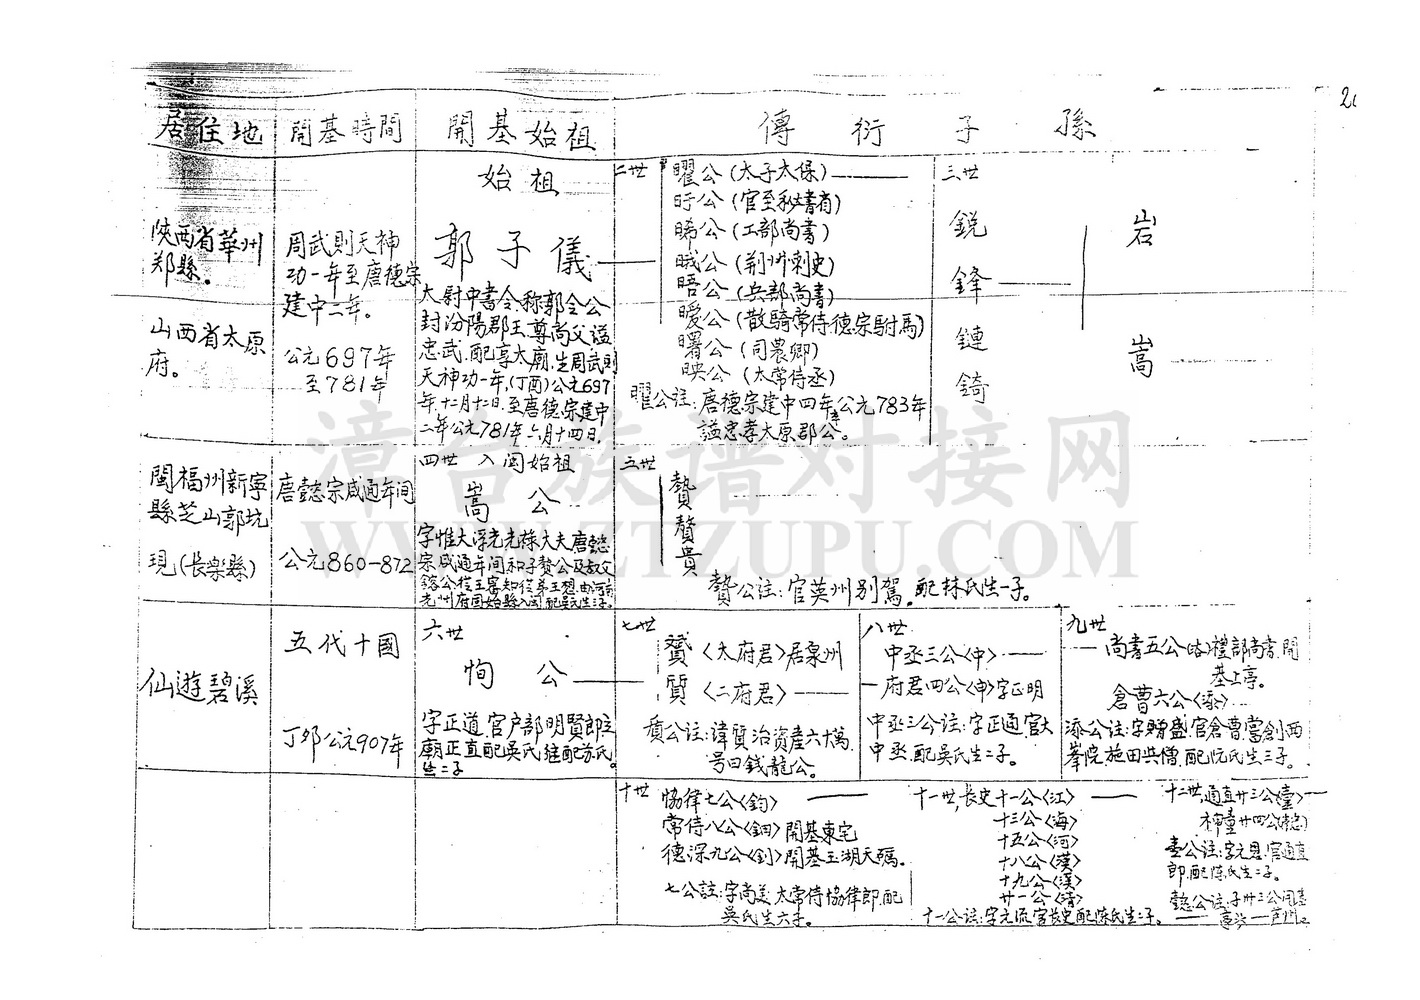 居住地 開基時間 開基始祖 傳衍子孫
陝西省華州
郑縣。
山西省太原
府。
周武則天神
功一年至唐德宗
建中二年。
公元697年
至781年
始祖
郭子儀
太尉中書令、称郭令公
封汾陽郡王、尊尚父、謚
忠武、配享太廟、生周武則
天神功一年,(丁酉)公元697
年、十二月十二日、至唐德宗建中
二年公元781年六月十四日。
二世
曜公(太子太保)
旴公(官至秘書省)
晞公(工部尚書)
㬂公(荆州刺史)
晤公(兵部尚書)
曖公(散騎常侍、德宗駙馬)
曙公(司農卿)
映公(太常侍丞)
曜公註:唐德宗建中四年公元783年
謚忠孝太原郡公。
三世
鋭
鋒
鏈
錡
岩
嵩
閩福州新寧
縣芝山郭坑
現(長樂縣)
唐懿宗咸通年间
公元860-872
四世 入闽始祖
嵩公
三世
贄
贇
貴
贄公註:官英州别駕。配林氏生一子。
仙遊碧溪
五代十國
丁卯公元907年
六世
恂公
字正道、官户部明賢郎立
廟正直配吳氏、继配苏氏。
生二子
七世
贇〈太府君〉居泉州
質〈二府君〉
質公註:諱質治资產六十萬
号曰錢龍公。
八世
中丞三公〈中〉
府君四公〈申〉字正明
中丞三公注:字正通、官大
中丞、配吴氏生二子。
九世
尚書五公〈㕡〉禮部尚書、開
基上亭。
倉曹六公〈添〉
添公注:字贈盛、官倉曹、當創西
峯院施田共僧、配阮氏生三子。
十世
協律七公〈鈞〉
常侍八公〈鈿〉開基東宅
德深九公〈釗〉開基玉湖天碼。
七公註:字尚美、太常侍協律郎、配
吳氏生六子。
十一世,長史十一公〈江〉
十三公〈海〉
十五公〈河〉
十八公〈漢〉
十九公〈溪〉
廿一公〈清〉
十一公注:字元流、官長史配陈氏生二子。
十二世,通直廿三公〈臺〉
臺公注:字元恩、官通直
郎、配陈氏生二子。
漳台族谱对接网
WWW.ZTZUPU.COM